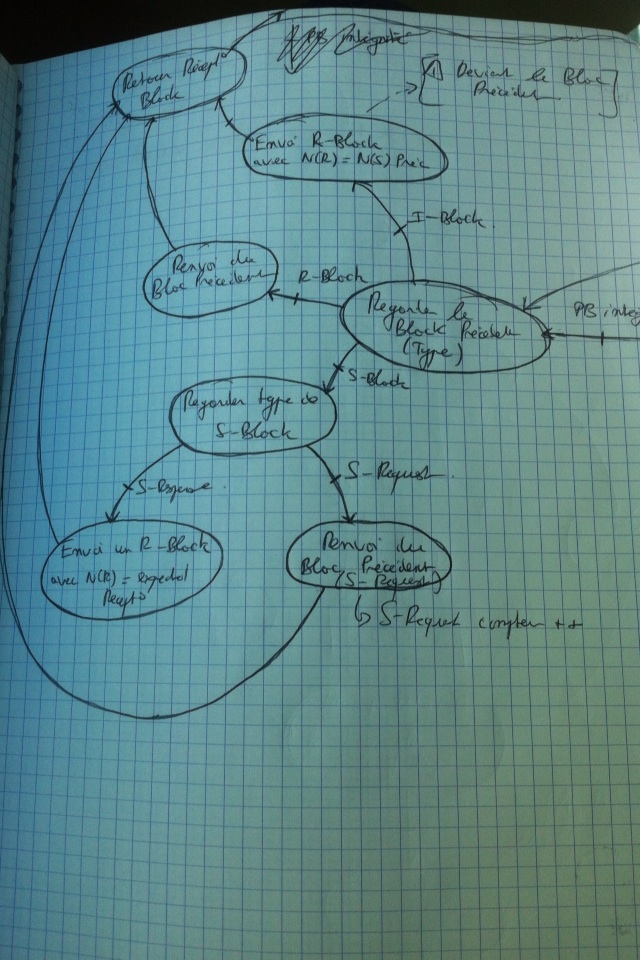 PB intégrité
Retour Récept°
Block
⚠ Devient le Bloc
Précédent.
Envoi R-Block
avec N(R) = N(S) Préc
I-Block
Renvoi du
Bloc Précédent
R-Block
Regarder le
Block Précédent
(Type)
PB intég
S-Block
Regarder type de
S-Block
S-Response
S-Request
Envoi un R-Block
avec N(R) = expected
Récept°
Renvoi du
Bloc Précédent
(S-Request)
↳ S-Request compteur ++